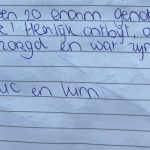 en zo enorm genot
! Heerlijk ontbijt, o
zorgd en war zijn
uc en Wim